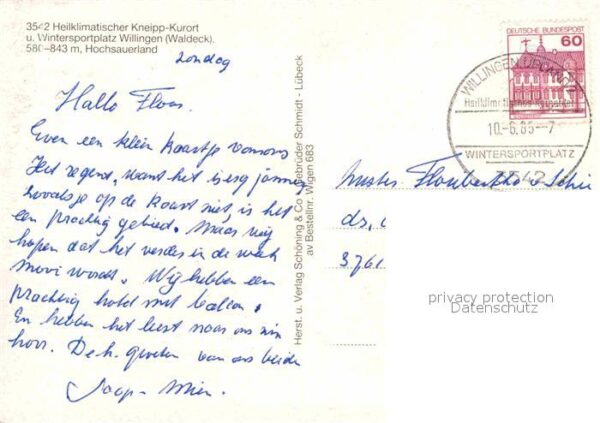 3542 Heilklimatischer Kneipp-Kurort
u. Wintersportplatz Willingen (Waldeck).
580-843 m, Hochsauerland
zondag
Hallo Floor.
Even een klein kaartje van ons
Het regend, want het is erg jammer
zoals je op de kaart ziet, is het
een prachtig gebied. Maar wij
hopen dat het verder in de week
mooi wordt. Wij hebben een
prachtig hotel met balkon.
En hebben het best naar ons zin
hoor. De h. groeten van ons beiden
Jaap - Wien.
Herst. u. Verlag Schöning & Co + Gebrüder Schmidt - Lübeck
av Bestellnr. Wigen 683
DEUTSCHE BUNDESPOST
60
WILLINGEN, UPLAND
Heilklimatischer Kneippkurort
10.-6.85--7
WINTERSPORTPLATZ
3542
ds.
3761
privacy protection
Datenschutz